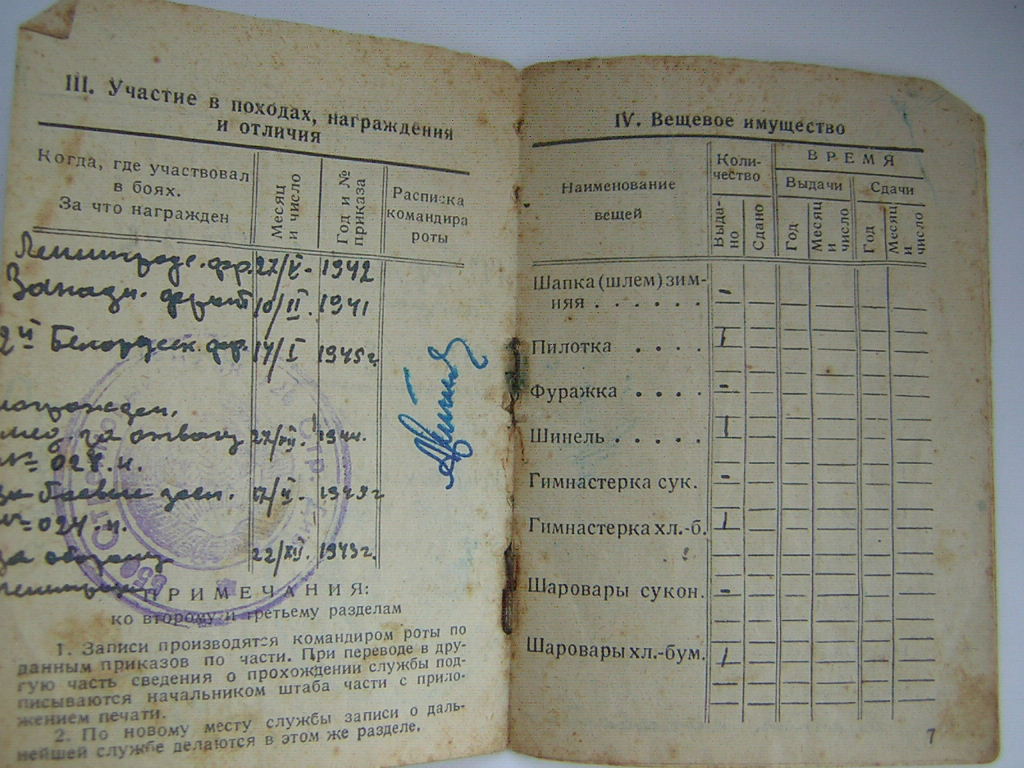 III. Участие в походах, награждения
и отличия
Когда, где участвовал
в боях.
За что награжден
Месяц
и число
Год и №
приказа
Расписка
командира
роты
Ленинградс. фр. 27/V - 1942
Западн. фронт 10/II. 1941
2й Белорусск. фр. 14/I 1945г.
мед. за отвагу 27/VII. 1944г.
№ 028. н.
за боевые засл. 17/II. 1945г
№ 024. н.
за оборону 22/XII. 1943г.
Ленинграда
ПРИМЕЧАНИЯ:
ко второму и третьему разделам
1. Записи производятся командиром роты по
данным приказов по части. При переводе в дру-
гую часть сведения о прохождении службы под-
писываются начальником штаба части с прило-
жением печати.
2. По новому месту службы записи о даль-
нейшей службе делаются в этом же разделе.
IV. Вещевое имущество
Наименование
вещей
Коли-
чество
ВРЕМЯ
Выдачи
Сдачи
Выда-
но
Сдано
Год
Месяц
и
число
Год
Месяц
и
число
Шапка (шлем) зим-
няя . . . . . . -
Пилотка . . . . 1
Фуражка . . . . -
Шинель . . . . . 1
Гимнастерка сук. -
Гимнастерка хл.-б. 1
Шаровары сукон. -
Шаровары хл.-бум. 1
7